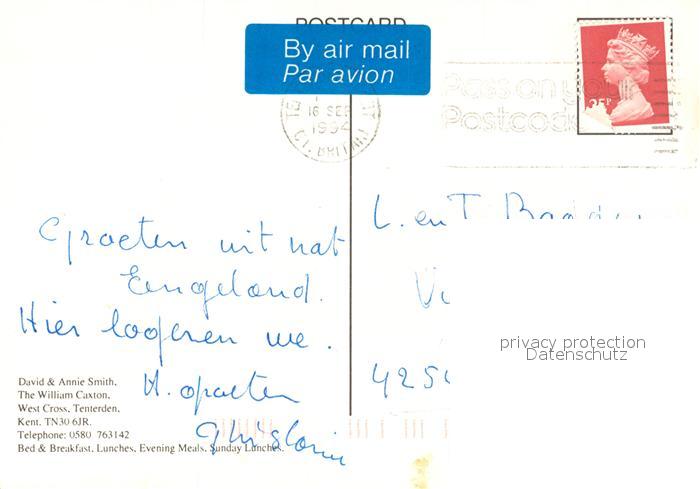 POSTCARD
By air mail
Par avion
16 SEP
1994
GT. BRITAIN
Pass on your
Postcode
25P
Groeten uit nat
Eengeland.
Hier logeren we.
H. groeten
Ghislain
L. en T.
4254
privacy protection
Datenschutz
David & Annie Smith,
The William Caxton,
West Cross, Tenterden,
Kent. TN30 6JR.
Telephone: 0580 763142
Bed & Breakfast, Lunches, Evening Meals, Sunday Lunches.